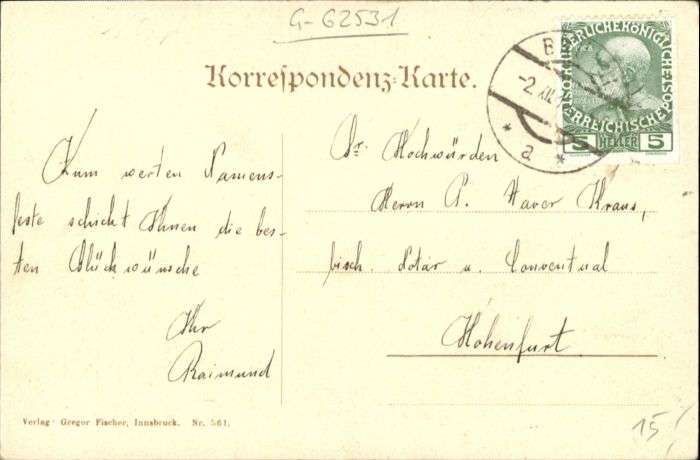 G-62531
Korrespondenz-Karte.
-2.XII.
a
5 HELLER 5
Zum werten Namens-
feste schickt Ihnen die bes-
ten Glückwünsche
Ihr
Raimund
Sr. Hochwürden
Herrn P. Xaver Kraus,
bisch. Notar u. Conventual
Hohenfurt.
Verlag: Gregor Fischer, Innsbruck. Nr. 561.
15/